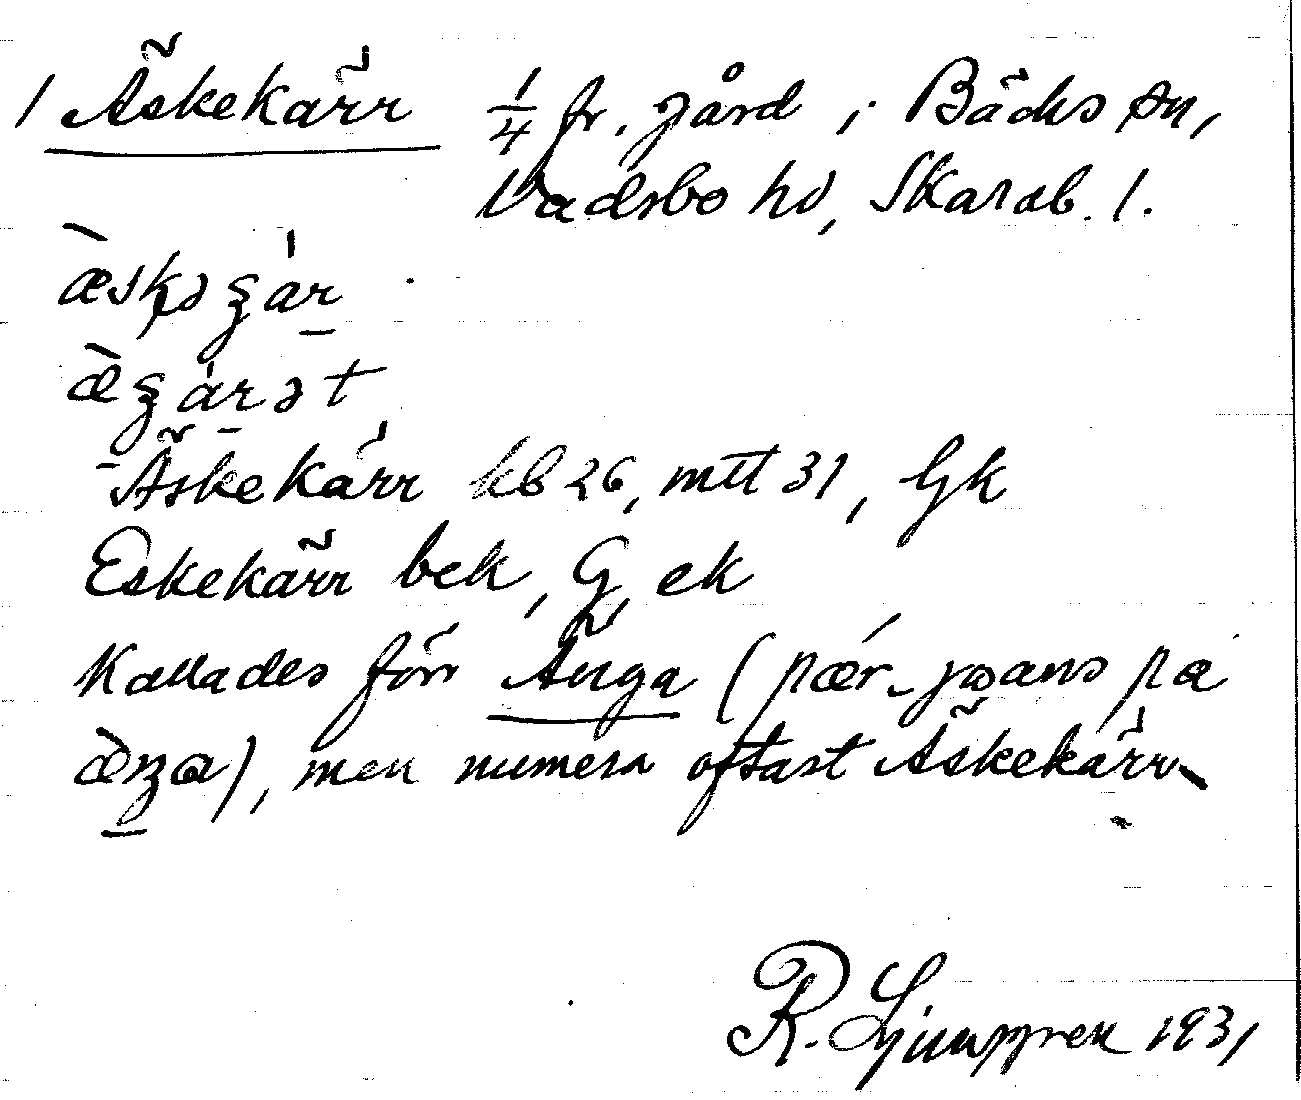 1 Äskekärr 1/4 fr. gård i Bäcks sn,
Vadsbo hd, Skarab. l.
Äskekärr kb 26, mtt 31, Gk
Eskekärr bek, G, ek
Kallades förr Änga (pær-
), men numera oftast Äskekärr
R. Ljunggren 1931